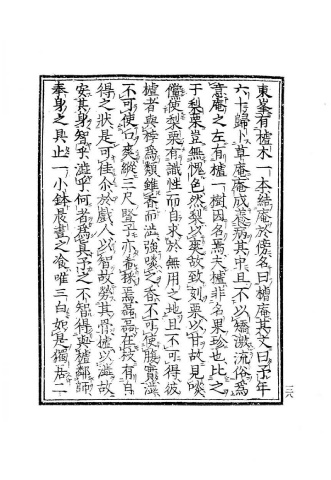 東峯有樝木一本結庵於傍名曰樝庵其文曰予年
六十歸卜草庵庵成養病其中且不以矯激流俗爲
意庵之左有樝一樹因名焉夫樝非名果珍也比之
于梨栗豈無愧色然梨以爽故致刻栗以甘故見啖
儻使梨栗有識性而自求於無用之地且不可得彼
樝者與梓爲類雖香而澁強啖之香不可使腹實澁
不可使口爽縱三尺豎子亦希採焉磊磊在枝有自
得之狀是可佳介於戲人以智故勞其骨樝以澁故
安其身智乎澁乎何者爲眞予之不智得與樝鄰師
奉身之具止一小鉢晨晝之飡唯三白如是獨居二
三八